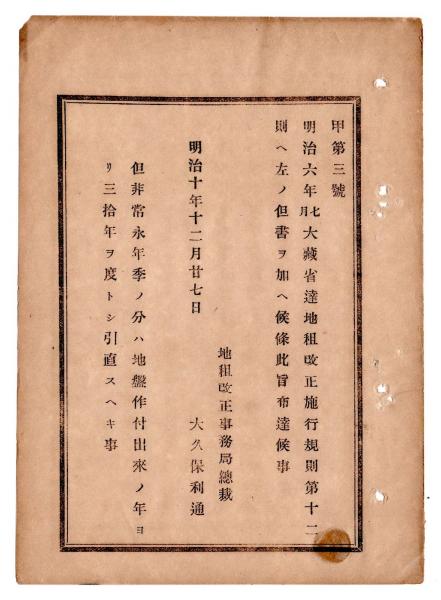 甲第三號
明治六年七月大藏省達地租改正施行規則第十二
則ヘ左ノ但書ヲ加ヘ候條此旨布達候事
地租改正事務局總裁
明治十年十二月廿七日　大久保利通
但非常永年季ノ分ハ地盤作付出來ノ年ヨ
リ三拾年ヲ度トシ引直スヘキ事